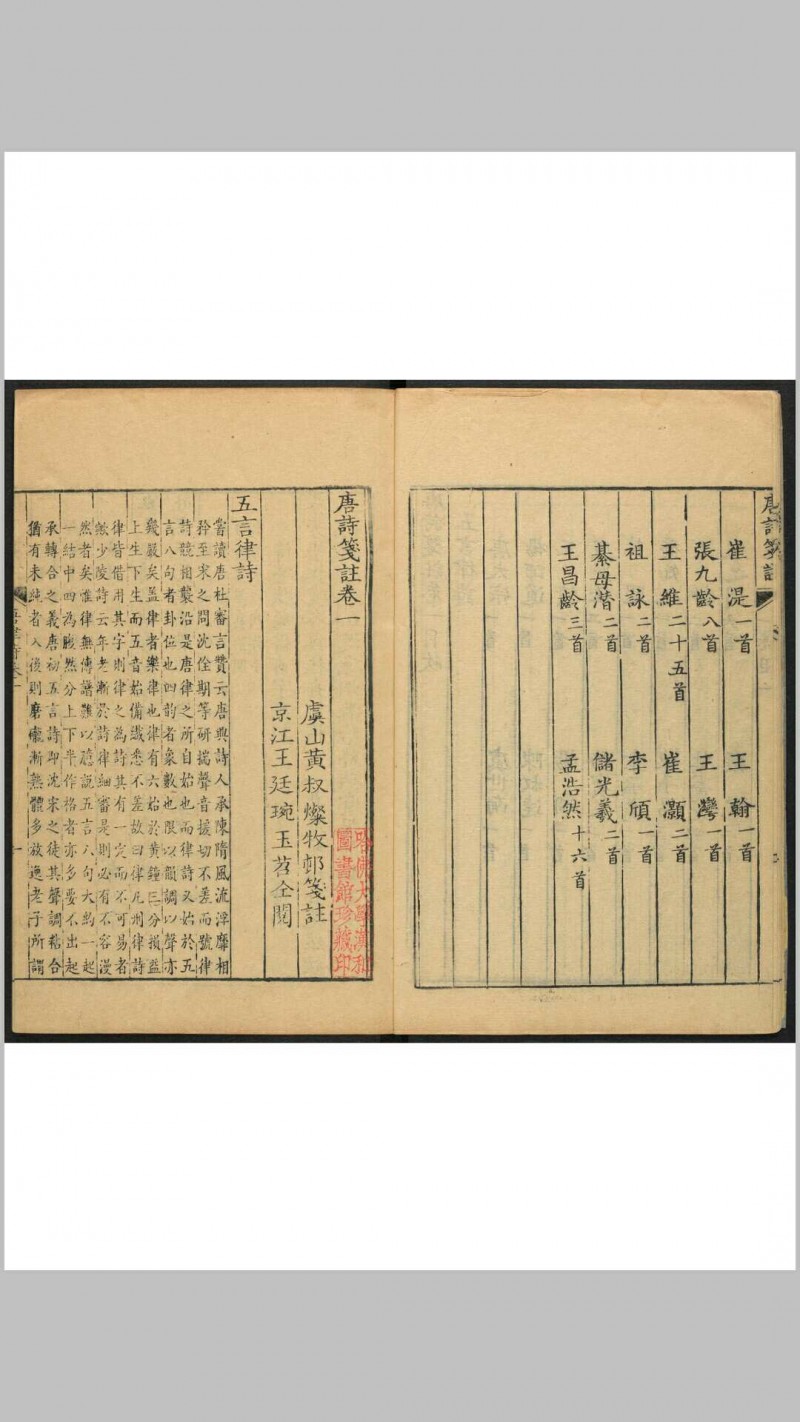 唐詩箋註
崔湜一首 王翰一首
張九齡八首 王灣一首
王維二十五首 崔灝二首
祖詠二首 李頎一首
綦母潛二首 儲光羲二首
王昌齡三首 孟浩然十六首
唐詩箋註卷一
虞山黃叔燦牧邨箋註
京江王廷琬玉苕仝閱
哈佛大學漢和
圖書館珍藏印
五言律詩
嘗讀唐杜審言贊云唐興詩人承陳隋風流浮靡相
矜至宋之問沈佺期等研揣聲音援切不差而號律
詩競相襲沿是唐律之所自始也而律詩又始於五
言八句者卦位也四韵者象數也限以韻調以聲亦
幾嚴矣盖律者樂律也律有六始於黃鐘三分損益
上生下生而五音始備纎悉不差故曰律凡刑律詩
律皆借用其字則律之為詩其有一定而不可易者
歟少陵詩云年老漸於詩律細審是則必有不容漫
然者矣惟律無傳譜難以臆說五言八句大約一起
一結中四為腰然分上下半作格者亦多要不出起
承轉合之義唐初五言詩即沈宋之徒其聲調粘合
猶有未純者入後則磨礲漸無體多放逸老子所謂